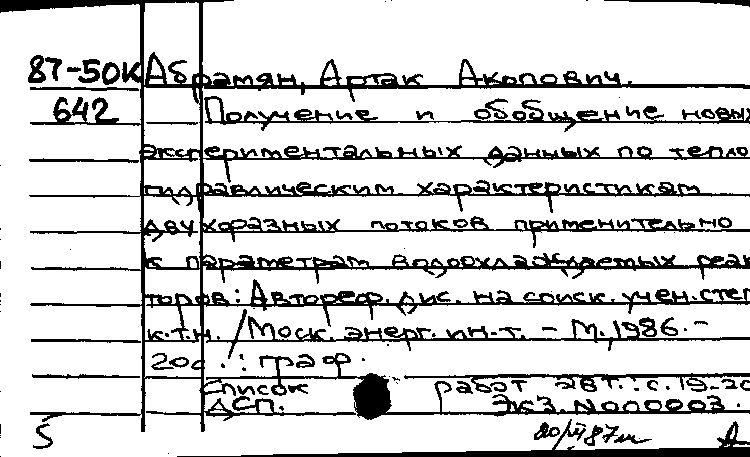 87-50К Абрамян, Артак Акопович.
642 Получение и обобщение новых
экспериментальных данных по тепло
гидравлическим характеристикам
двухфазных потоков применительно
к параметрам водоохлаждаемых реак
торов: Автореф. дис. на соиск. учен. степ
к.т.н. / Моск. энерг. ин-т. - М., 1986. -
20с.: граф.
Список работ авт.: с. 19-20
ДСП. Экз. N000003.
5